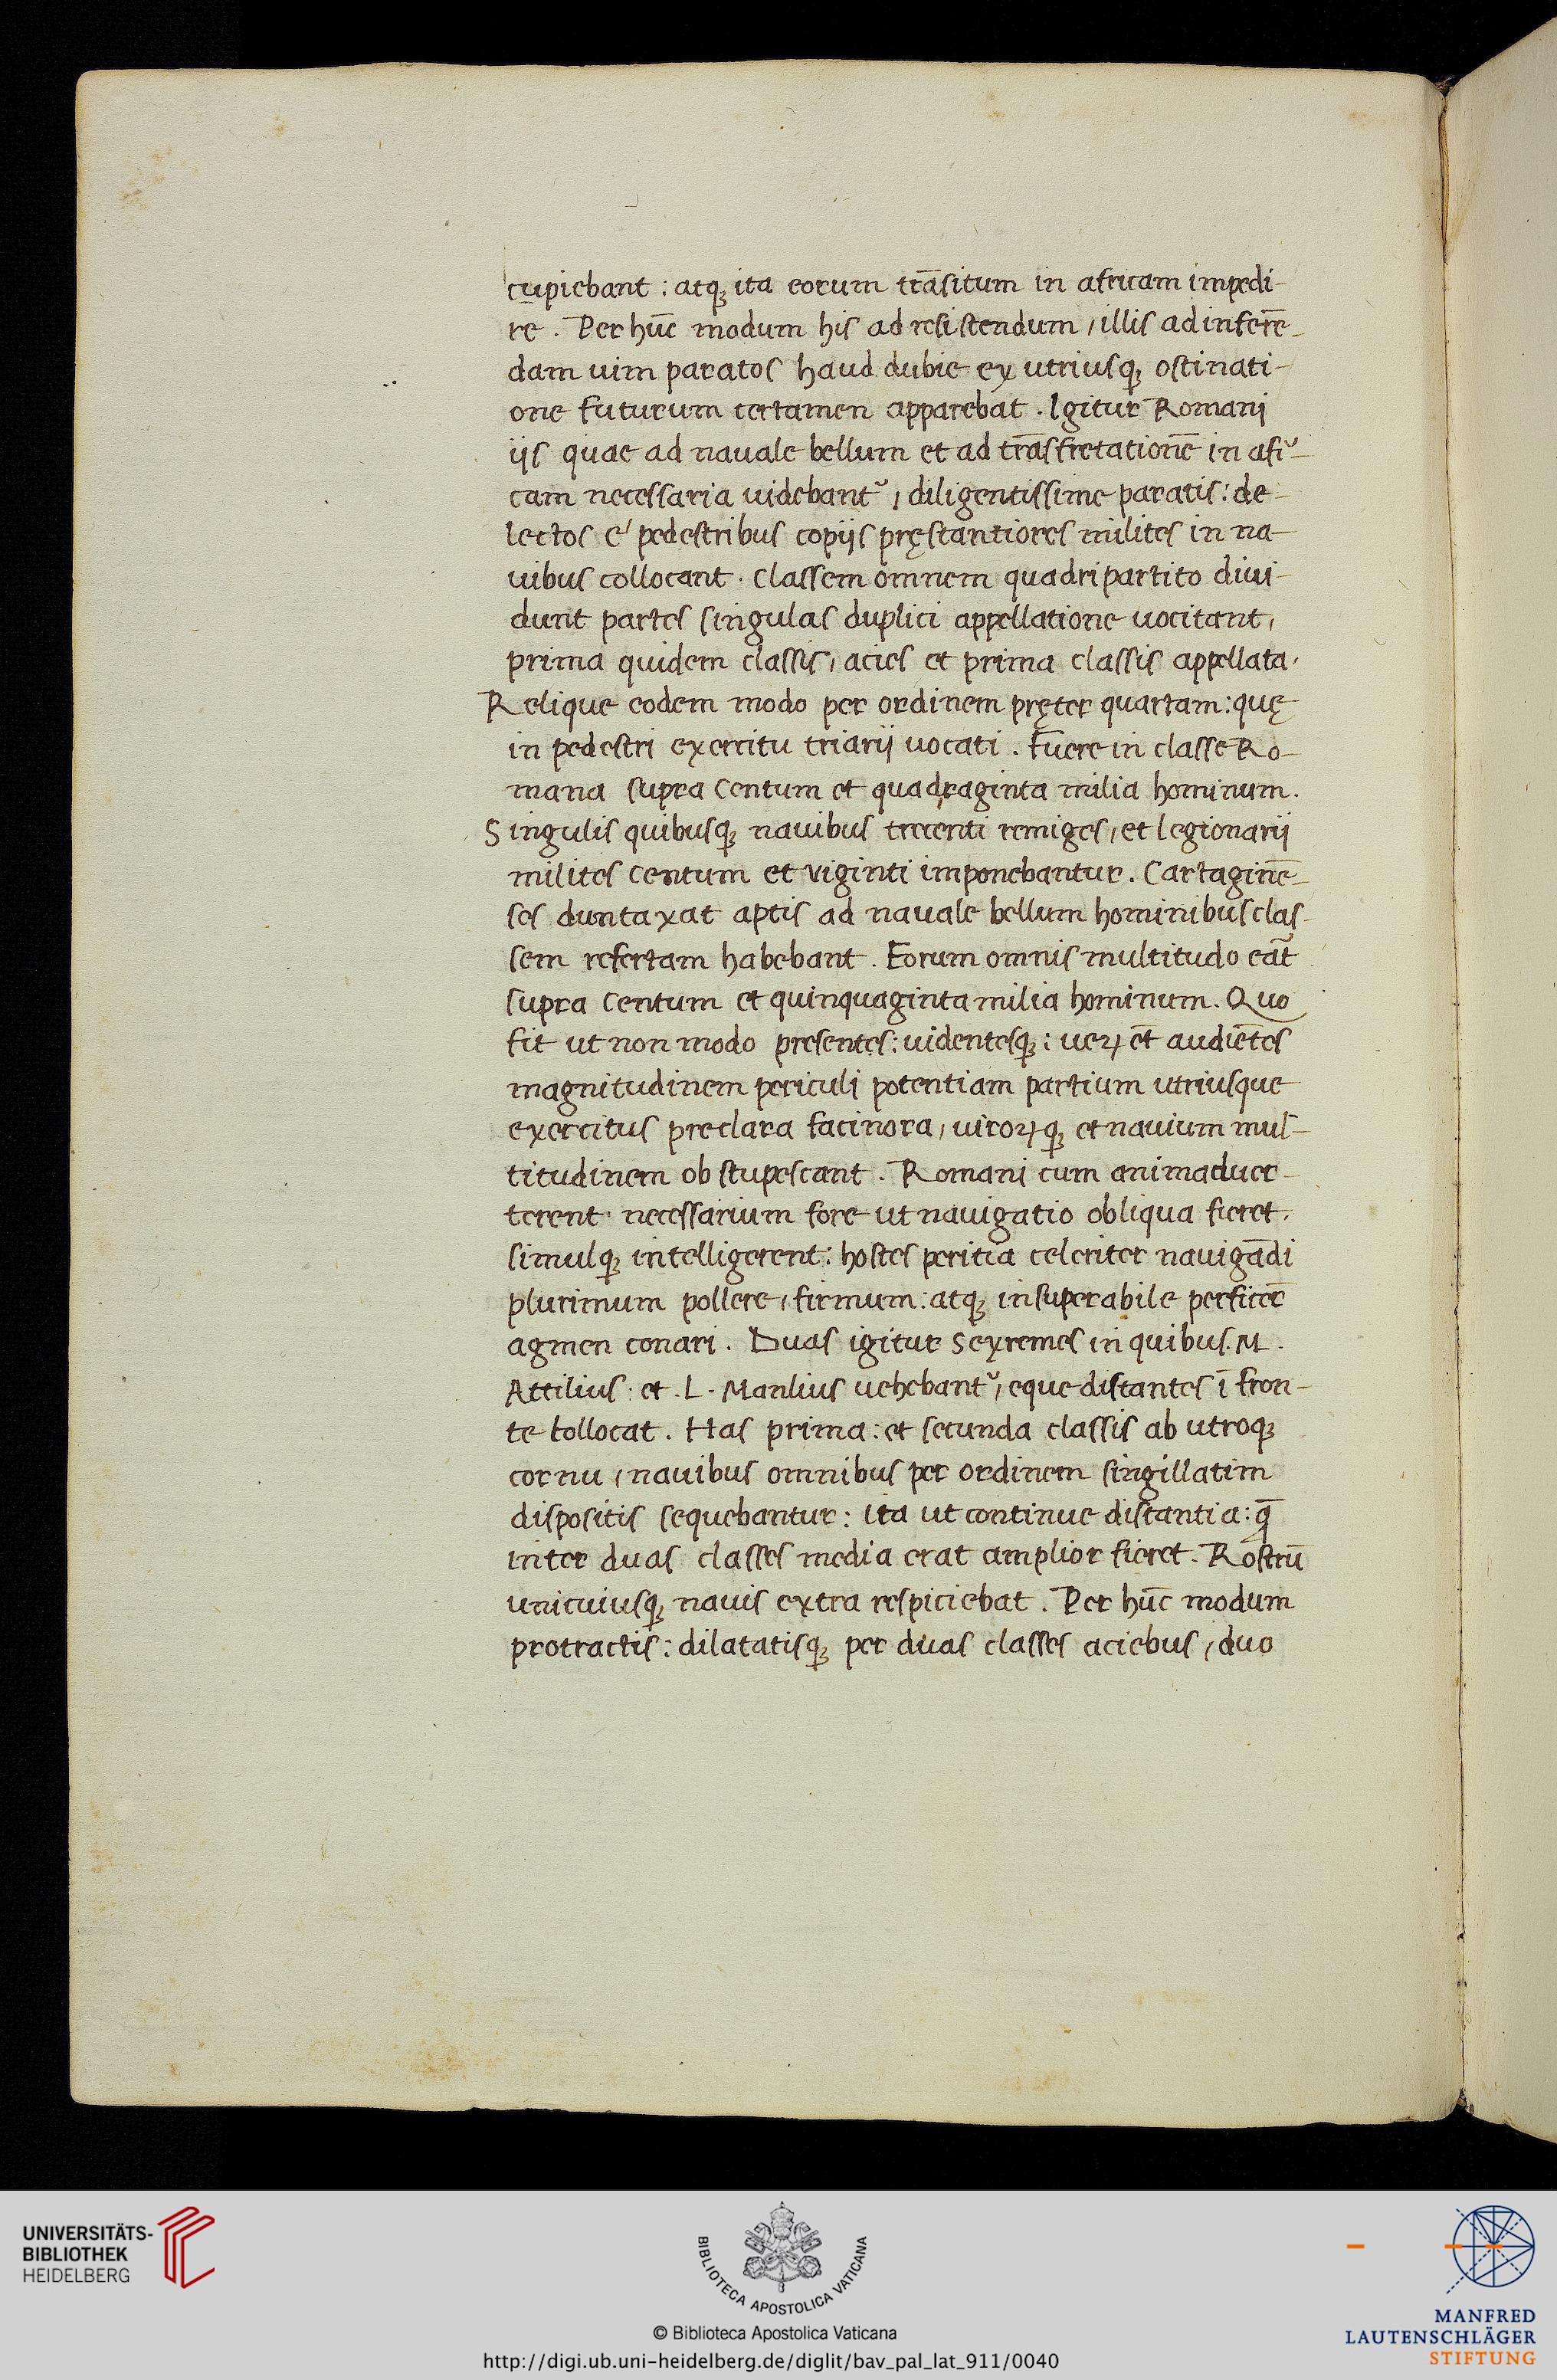 cupiebant : atqꝫ ita eorum trāsitum in africam impedi-
re . Per hūc modum his ad resistendum , illis ad inferē-
dam uim paratos haud dubie ex utriusqꝫ ostinati-
one futurum certamen apparebat . Igitur Romani
iis quae ad nauale bellum et ad trāsfretationē in afri-
cam necessaria uidebant᷑ , diligentissime paratis : de-
lectos é pedestribus copiis pręstantiores milites in na-
uibus collocant . Classem omnem quadripartito diui-
dunt partes singulas duplici appellatione uocitant ,
prima quidem classis , acies et prima classis appellata .
Relique eodem modo per ordinem pręter quartam : quę
in pedestri exercitu triarii uocati . Fuere in classe Ro-
mana supra centum et quadraginta milia hominum .
Singulis quibusqꝫ nauibus trecenti remiges , et legionarii
milites centum et viginti imponebantur . Cartaginē-
ses duntaxat aptis ad nauale bellum hominibus clas-
sem refertam habebant . Eorum omnis multitudo erāt
supra centum et quinquaginta milia hominum . Quo
fit ut non modo presentes : uidentesqꝫ : ueꝝ et̄ audiētes
magnitudinem periculi potentiam partium utriusque
exercitus preclara facinora , uiroꝝqꝫ et nauium mul-
titudinem obstupescant . Romani cum animaduer-
terent necessarium fore ut nauigatio obliqua fieret .
simulqꝫ intelligerent : hostes peritia celeriter nauigādi
plurimum pollere , firmum : atqꝫ insuperabile perficer̄
agmen conari . Duas igitur sexremes in quibus . M .
Attilius : et . L . Manlius uehebant᷑ , eque distantes ī fron-
te collocat . Has prima : et secunda classis ab utroqꝫ
cornu , nauibus omnibus per ordinem singillatim
dispositis sequebantur : ita ut continue distantia : q̄
inter duas classes media erat amplior fieret . Rostrū
unicuiusqꝫ nauis extra respiciebat . Per hūc modum
protractis : dilatatisqꝫ per duas classes aciebus , duo
UNIVERSITÄTS-
BIBLIOTHEK
HEIDELBERG
BIBLIOTECA APOSTOLICA VATICANA
© Biblioteca Apostolica Vaticana
http://digi.ub.uni-heidelberg.de/diglit/bav_pal_lat_911/0040
MANFRED
LAUTENSCHLÄGER
STIFTUNG